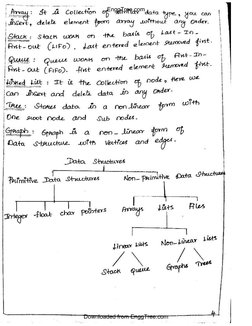 EnggTree.com
Array : It is Collection of similar data type, you can
insert, delete element from array without any order.
Stack : Stack work on the basis of Last-In-
First-out (LIFO). Last entered element removed first.
Queue : Queue works on the basis of First-In-
First-out (FIFO). First entered element removed first.
Linked List : It is the collection of node, Here we
can insert and delete data in any order.
Tree : Stores data in a non linear form with
One root node and Sub nodes.
Graph : Graph is a non-linear form of
Data Structure with Vertices and edges.
Data Structures
Primitive Data Structures Non-Primitive Data Structures
Integer float char pointers Arrays Lists Files
Linear Lists Non-Linear Lists
Stack Queue Graphs Trees
4
Downloaded from EnggTree.com